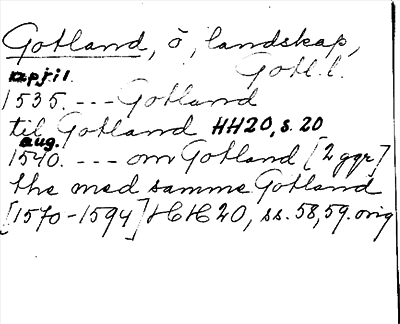 Gotland, ö, landskap,
Gotl.l.
april.
1535. --- Gotland
til Gotland HH20, s. 20
aug.
1540. --- om Gotland [2 ggr]
the med samme Gotland
[1570-1594] HH 20, ss. 58, 59. orig